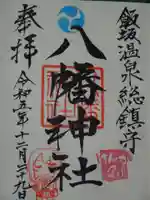 飯坂温泉総鎮守
八幡神社
奉拝
令和五年十二月二十九日